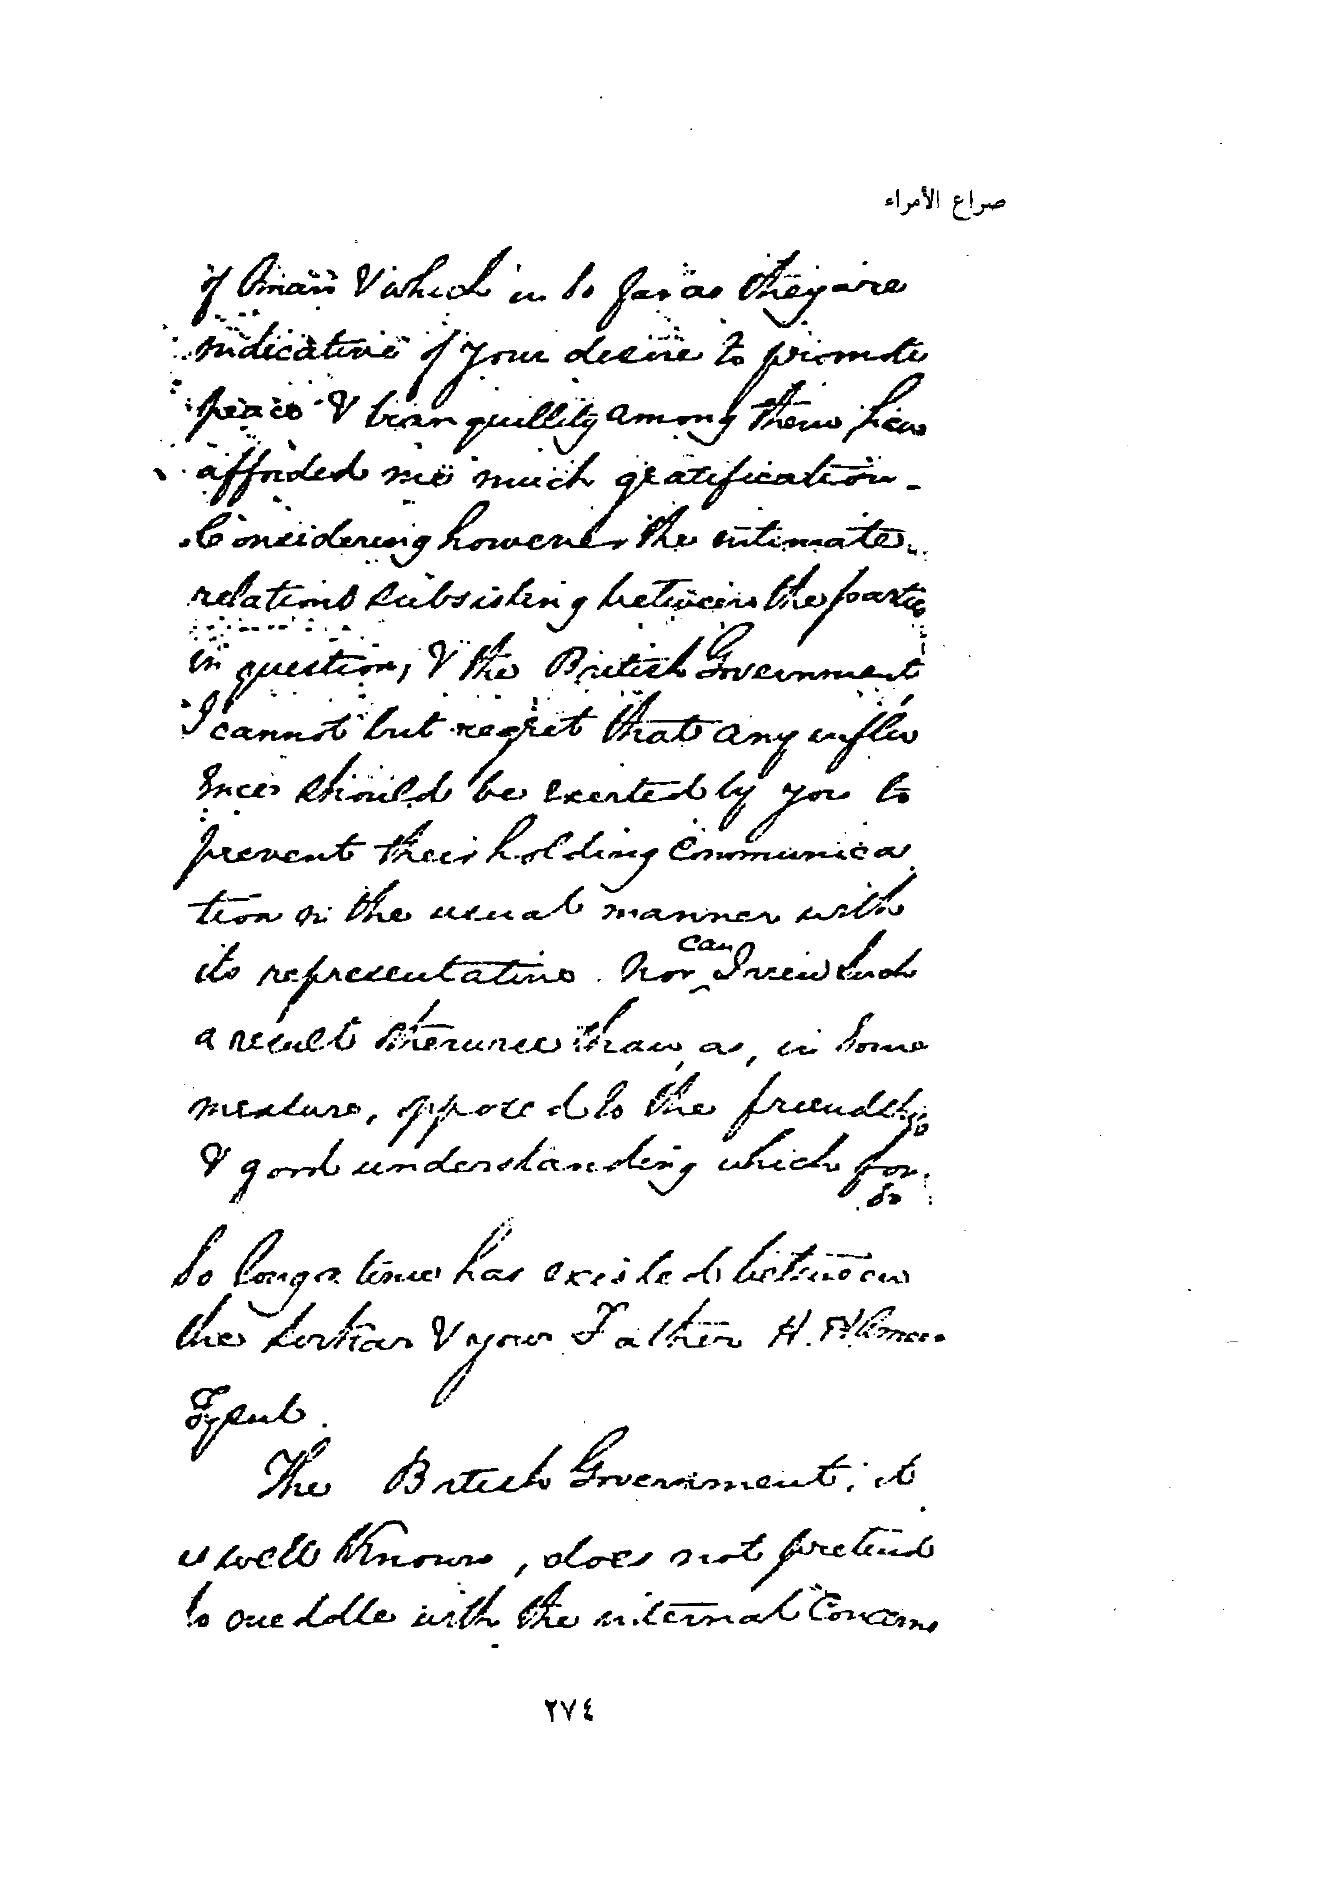 صراع الأمراء
of Oman & which in so far as they are
indicative of your desire to promote
peace & tranquillity among them have
afforded me much gratification -
Considering however the intimate
relations subsisting between the parties
in question, & the British Government
I cannot but regret that any influ
ence should be exerted by you to
prevent their holding communica
tion in the usual manner with
its representative. Nor can I view such
a result otherwise than, as, in some
measure, opposed to the friendship
& good understanding which for
so
so long a time has existed between
the Sirkar & your Father H. H. Ameer
Fysul.
The British Government, it
is well known, does not pretend
to meddle with the internal concerns
٢٧٤